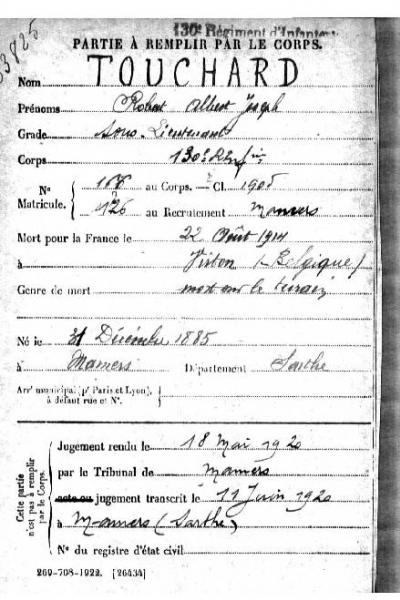 130e Régiment d'Infanterie
PARTIE À REMPLIR PAR LE CORPS.
Nom TOUCHARD
Prénoms Robert Albert Joseph
Grade Sous-Lieutenant
Corps 130e
No Matricule. { au Corps. — Cl. 1905
au Recrutement Mamers
Mort pour la France le 22 Août 1914
à Virton (Belgique)
Genre de mort mort sur le terrain
Né le 31 Décembre 1885
à Mamers Département Sarthe
Arrt municipal (pr Paris et Lyon),
à défaut rue et No.
Cette partie n'est pas à remplir par le Corps.
Jugement rendu le 18 Mai 1920
par le Tribunal de Mamers
acte ou jugement transcrit le 11 Juin 1920
à Mamers (Sarthe)
No du registre d'état civil
269-708-1922. [26434]